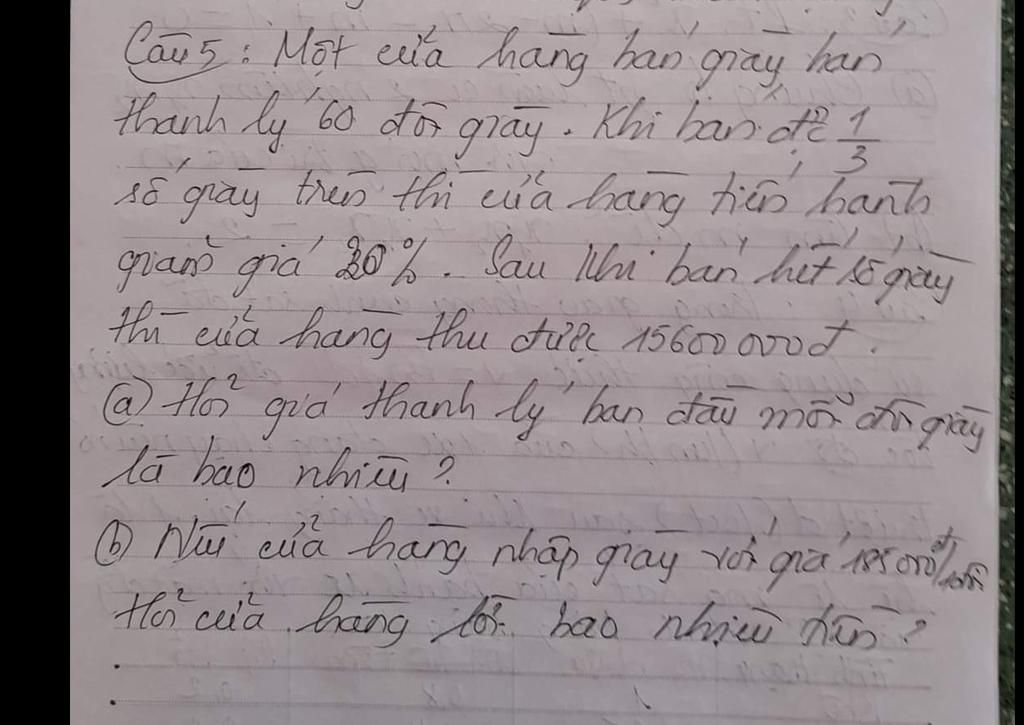 Câu 5: Một cửa hàng bán giày bán
thanh lý 60 đôi giày. Khi bán đc 1/3
số giày trên thì cửa hàng tiến hành
giảm giá 30%. Sau khi bán hết số giày
thì cửa hàng thu được 15600 000đ.
(a) Hỏi giá thanh lý ban đầu mỗi đôi giày
là bao nhiêu?
(b) Nếu cửa hàng nhập giày với giá 185 000đ/đôi
Hỏi cửa hàng lời bao nhiêu tiền?